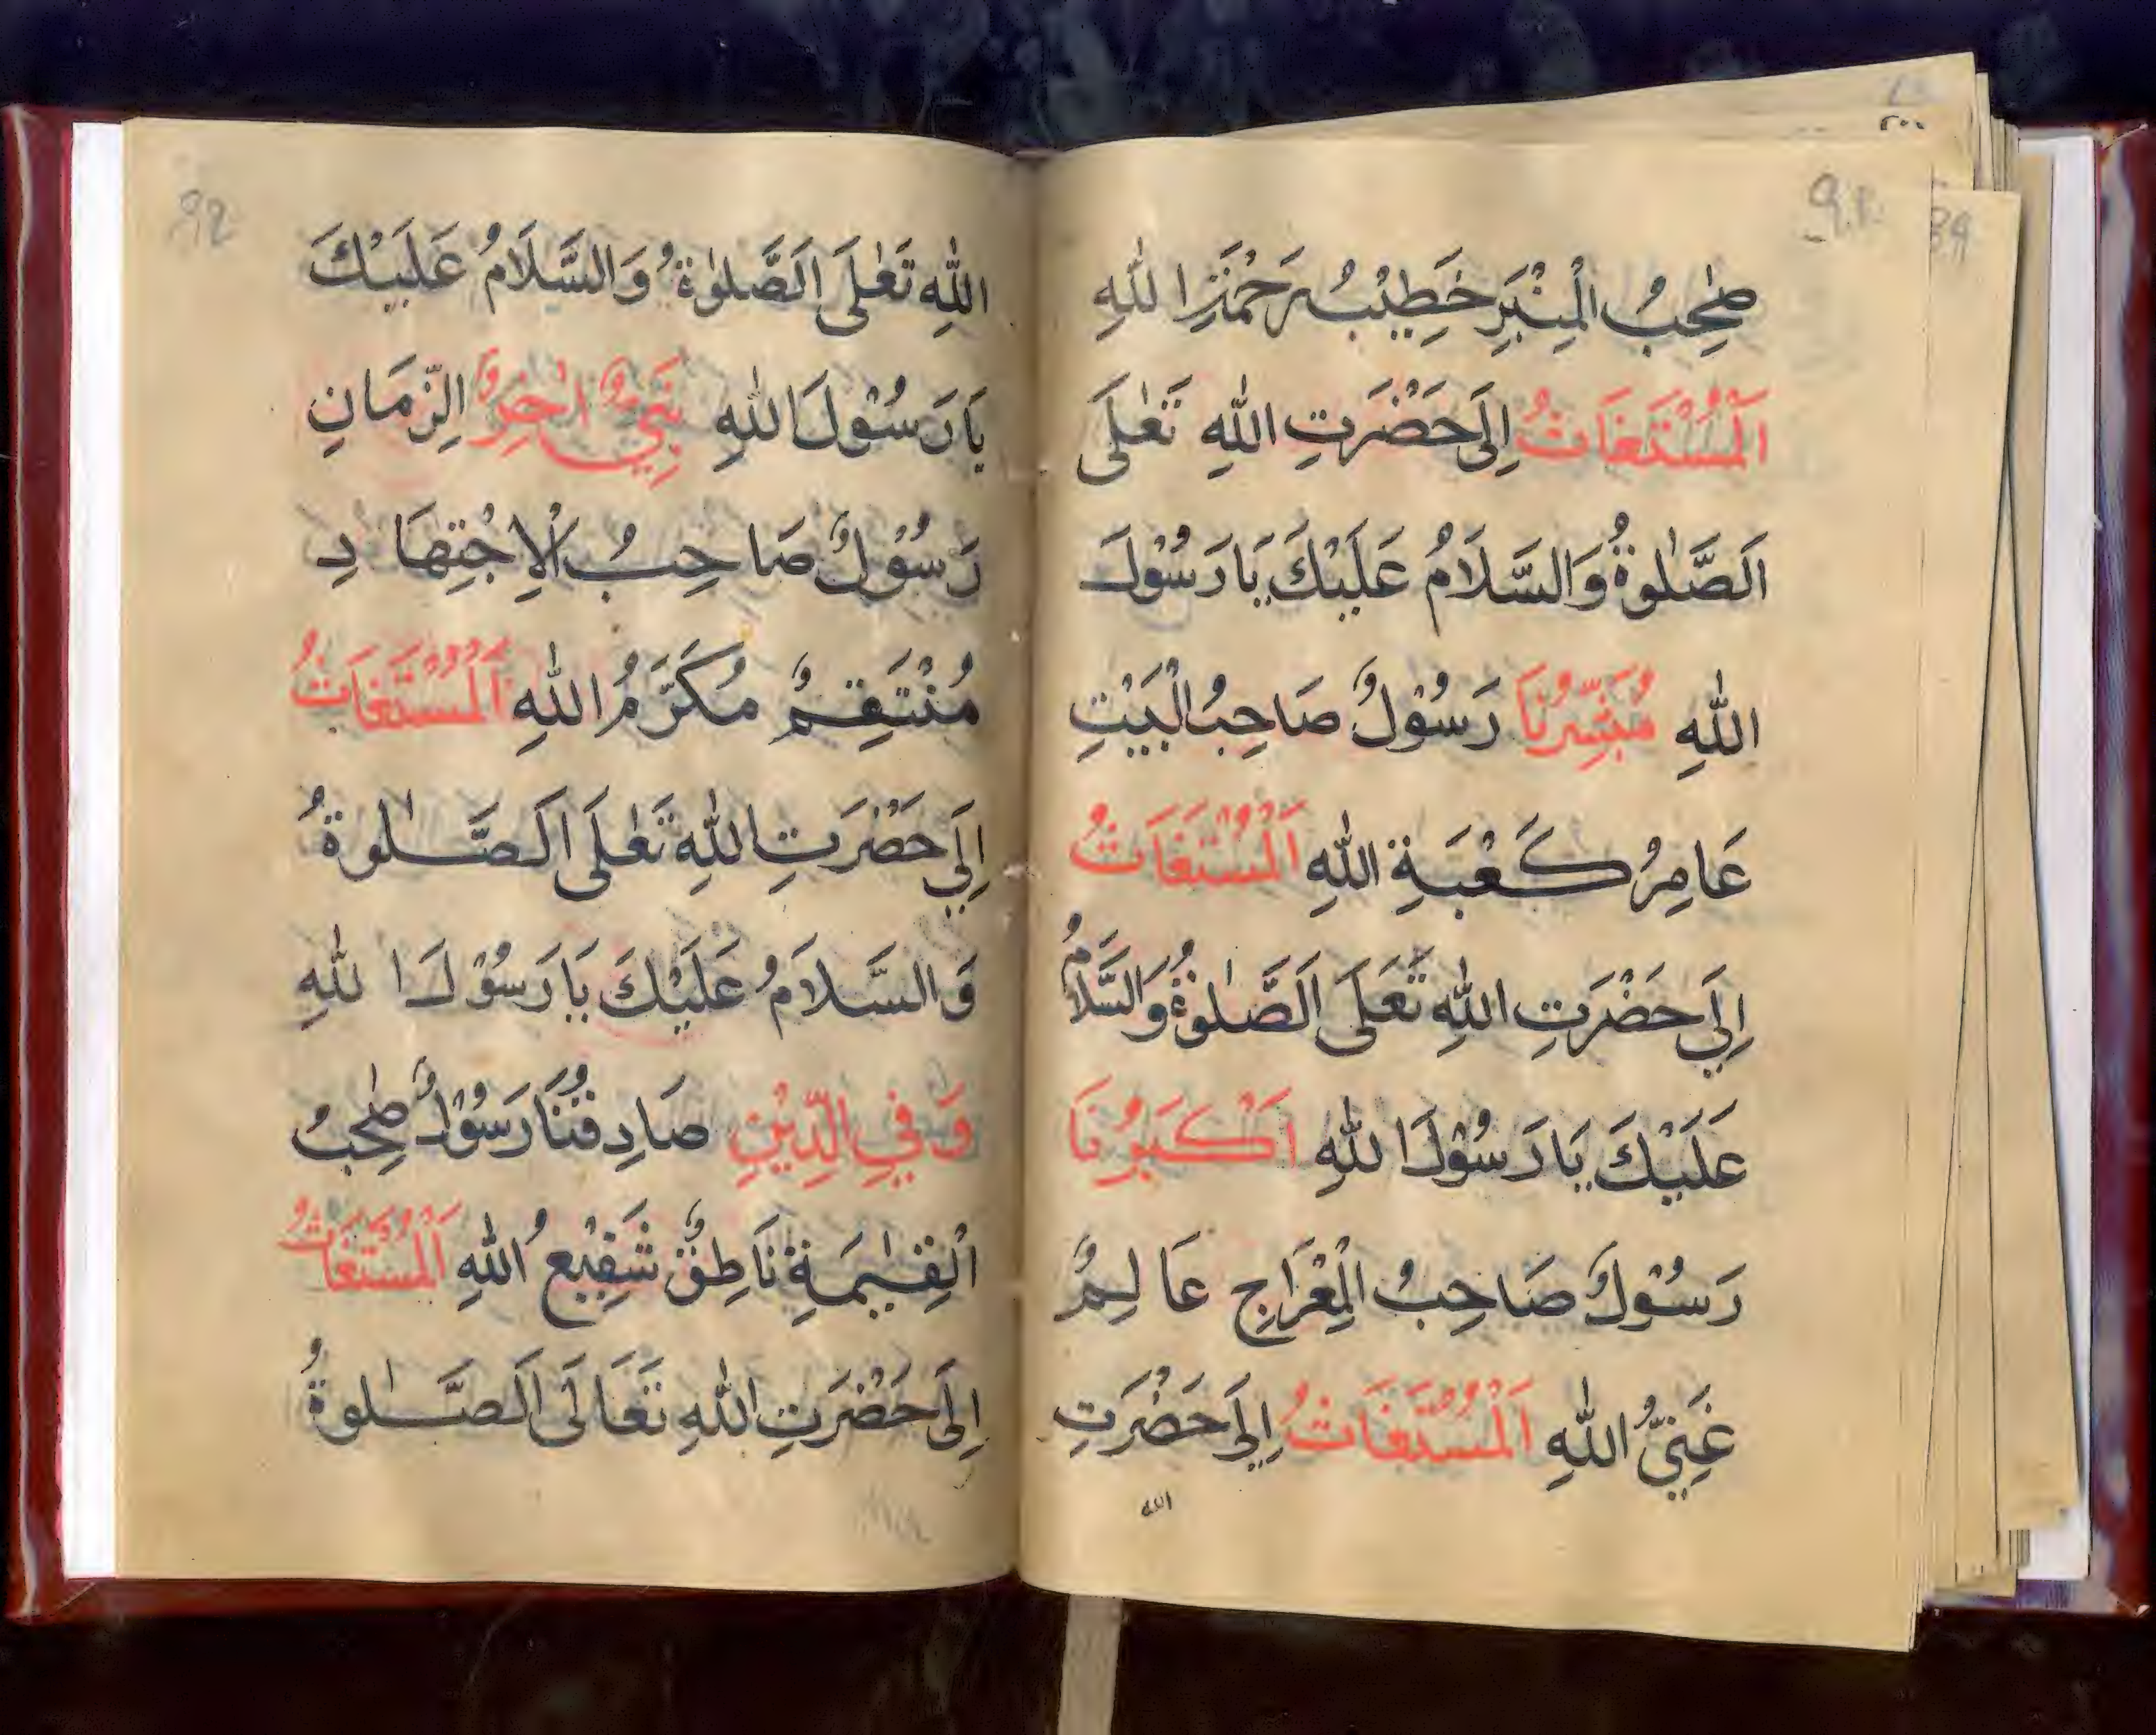 صٰحِبُ الْمِنْبَرِ خَطِيْبُ رَحْمَةِ اللّٰهِ
اَلْمُسْتَغَاثُ اِلَى حَضْرَتِ اللّٰهِ تَعٰلَى
اَلصَّلٰوةُ وَالسَّلَامُ عَلَيْكَ يَا رَسُوْلَ
اللّٰهِ مُبَشِّرُنَا رَسُوْلٌ صَاحِبُ الْبَيْتِ
عَامِرُ كَعْبَةِ اللّٰهِ اَلْمُسْتَغَاثُ
اِلَى حَضْرَتِ اللّٰهِ تَعَلَى اَلصَّلٰوةُ وَالسَّلَامُ
عَلَيْكَ يَا رَسُوْلَ اللّٰهِ اَكْبَرُنَا
رَسُوْلٌ صَاحِبُ الْمِعْرَاجِ عَالِمٌ
غَنِيُّ اللّٰهِ اَلْمُسْتَغَاثُ اِلَى حَضْرَتِ
الله
92
اللّٰهِ تَعٰلَى اَلصَّلٰوةُ وَالسَّلَامُ عَلَيْكَ
يَا رَسُوْلَ اللّٰهِ نَبِيٌّ اٰخِرُ الزَّمَانِ
رَسُوْلٌ صَاحِبُ الْاِجْتِهَادِ
مُنْتَقِمٌ مُكَرَّمُ اللّٰهِ اَلْمُسْتَغَاثُ
اِلَى حَضْرَتِ اللّٰهِ تَعٰلَى اَلصَّلٰوةُ
وَالسَّلَامُ عَلَيْكَ يَا رَسُوْلَ اللّٰهِ
وَفِي الدِّيْنِ صَادِقُنَا رَسُوْلٌ صٰحِبُ
الْقِيٰمَةِ نَاطِقٌ شَفِيْعُ اللّٰهِ اَلْمُسْتَغَاثُ
اِلَى حَضْرَتِ اللّٰهِ تَعَالَى اَلصَّلٰوةُ